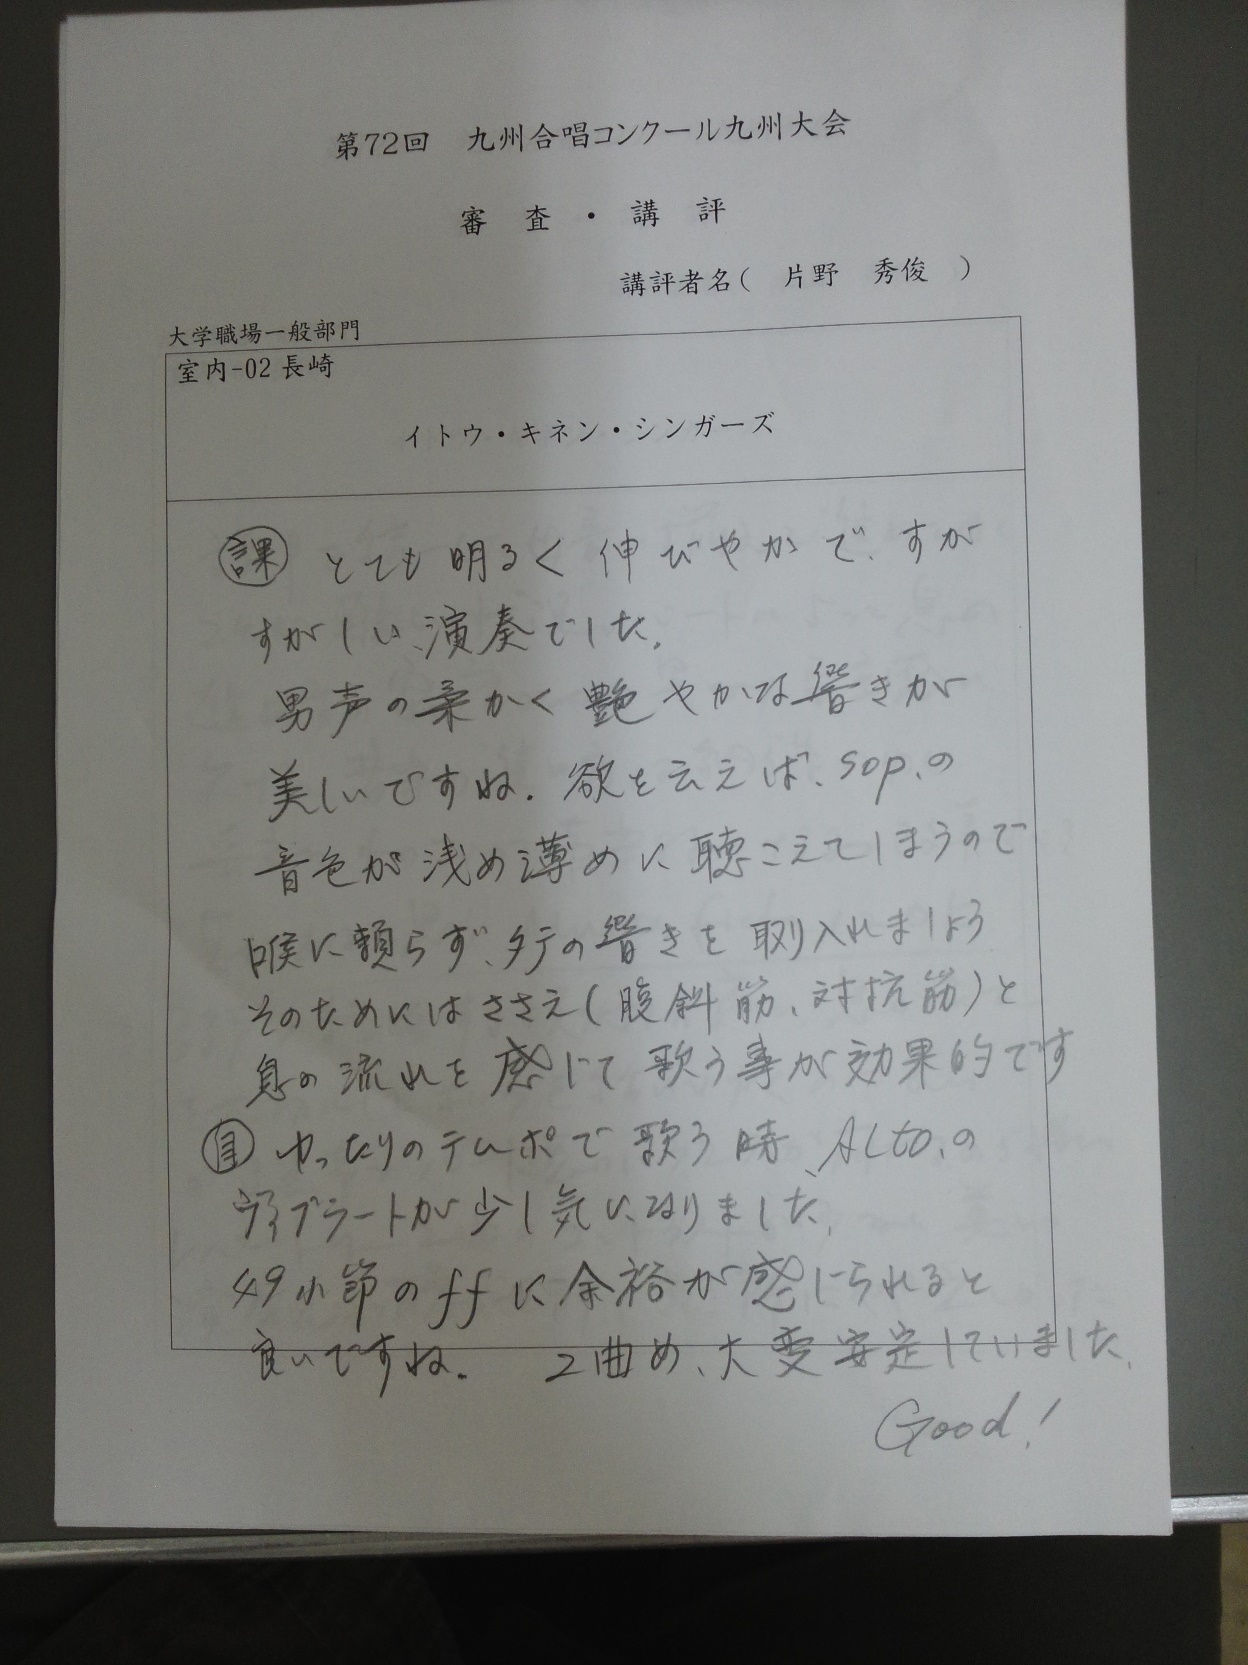 第72回　九州合唱コンクール九州大会
審　査　・　講　評
講評者名(　片野　秀俊　)
大学職場一般部門
室内-02 長崎
イトウ・キネン・シンガーズ
課 とても明るく伸びやかで、すが
すがしい演奏でした。
男声の柔かく艶やかな響きが
美しいですね。欲を云えば、sop.の
音色が浅め薄めに聴こえてしまうので
喉に頼らず、タテの響きを取り入れましょう
そのためにはささえ(腹斜筋、対抗筋)と
息の流れを感じて歌う事が効果的です
自 ゆったりのテムポで歌う時、ALto.の
ヴィブラートが少し気になりました。
49小節のffに余裕が感じられると
良いですね。　2曲め、大変安定していました。
Good!